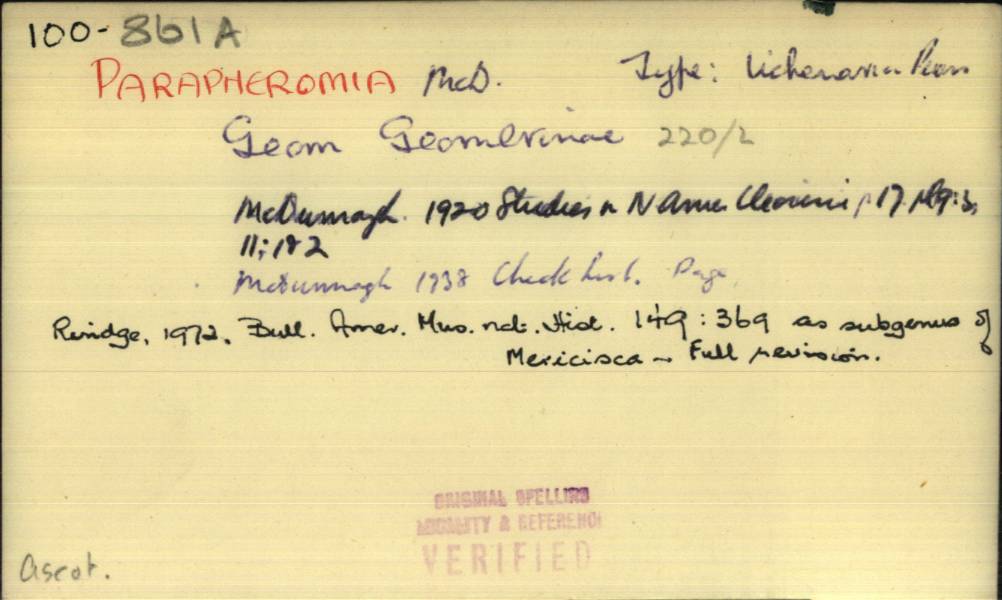 100-861A
PARAPHEROMIA McD. Type: lichenaria Pears
Geom Geometrinae 220/2
McDunnough 1920 Studies in N Amer Cleorini p17
11; 1&2
McDunnough 1938 Check List. Page
Rindge, 1972. Bull. Amer. Mus. nat. Hist. 149:369 as subgenus of
Mericisca - Full revision.
ORIGINAL SPELLING
& REFERENCE
VERIFIED
Ascot.